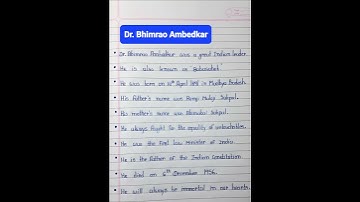 Dr. Bhimrao Ambedkar
Dr. Bhimrao Ambedkar was a great Indian leader.
He is also known as Babasaheb.
He was born on 14th April 1891 in Madhya Pradesh.
His father's name was Ramji Maloji Sakpal.
His mother's name was Bhimabai Sakpal.
He always fought for the equality of untouchables.
He was the first law minister of India.
He is the Father of the Indian Constitution
He died on 6th December 1956.
He will always be immortal in our hearts.